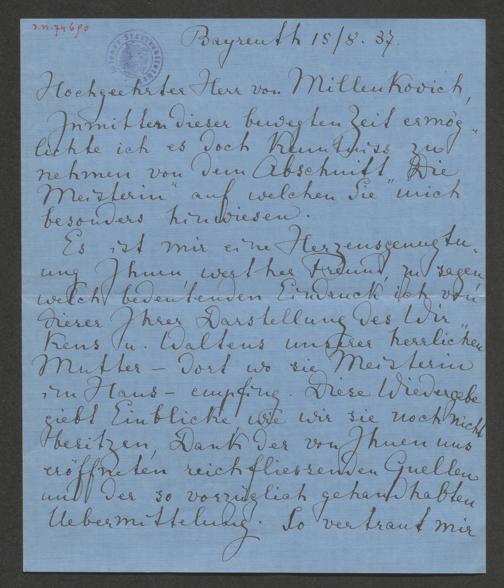 Bayreuth 15/8. 37.
Hochgeehrter Herr von Millenkovich,
Inmitten dieser bewegten Zeit ermög-
lichte ich es doch Kenntniss zu
nehmen von dem Abschnitt "Die
Meisterin" auf welchen Sie mich
besonders hinwiesen.
Es ist mir eine Herzensgenugtu-
ung Ihnen werther Freund, zu sagen
welch bedeutenden Eindruck ich von
dieser Ihrer Darstellung des Wir-
kens u. Waltens unserer herrlichen
Mutter – dort wo sie "Meisterin
im Haus – empfing. Diese Wiedergabe
giebt Einblicke wie wir sie noch nicht
besitzen, Dank der von Ihnen uns
eröffneten reich fliessenden Quellen
und der so vorzüglich gehandhabten
Uebermittelung. So vertraut mir